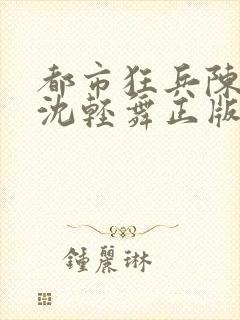 都市狂兵陳
沈輕舞正版
鍾麗琳